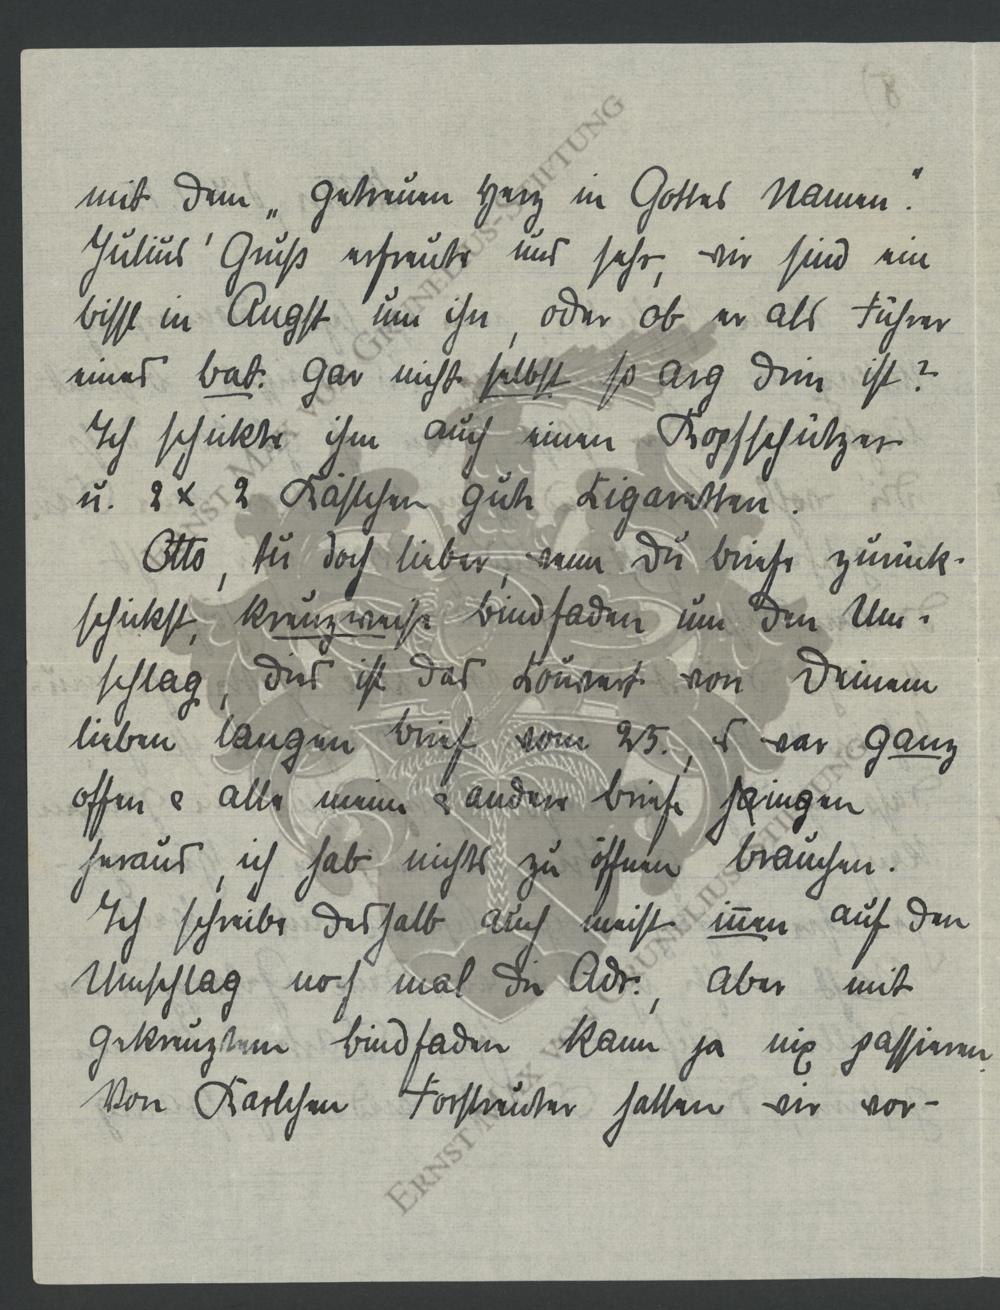 8)
mit dem „getreuen Herz in Gottes Namen".
Julius' Gruß erfreute uns sehr, wir sind ein
bissl in Angst um ihn, oder ob er als Führer
eines bat. gar nicht selbst so arg drin ist?
Ich schickte ihm auch einen Kopfschützer
u. 2 x 2 Kästchen gute Zigaretten.
Otto, tu doch lieber, wenn Du briefe zurück-
schickst, kreuzweise bindfaden um den Um-
schlag, dies ist das Couvert von Deinem
lieben langen brief vom 25., es war ganz
offen & alle meine & andere briefe hingen
heraus, ich hab nichts zu öffnen brauchen.
Ich schreibe deshalb auch meist innen auf den
Umschlag noch mal die Adr., aber mit
gekreuztem bindfaden kann ja nix passieren.
Von Karlchen Forstreuter hatten wir vor-
ERNST MAX VON GRUNELIUS-STIFTUNG
ERNST MAX VON GRUNELIUS-STIFTUNG